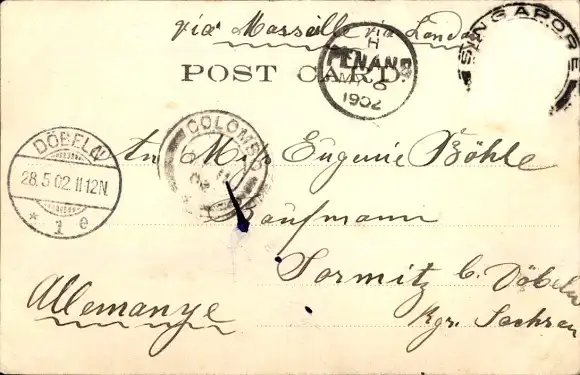 via Marseille via London
POST CARD.
PENANG
H
MY 6
1902
SINGAPORE
COLOMBO
DÖBELN
28.5.02.11-12N.
* 1 e
An Miss Eugenie Böhle
Kaufmann
Sormitz b. Döbeln
Kgr. Sachsen
Allemanye